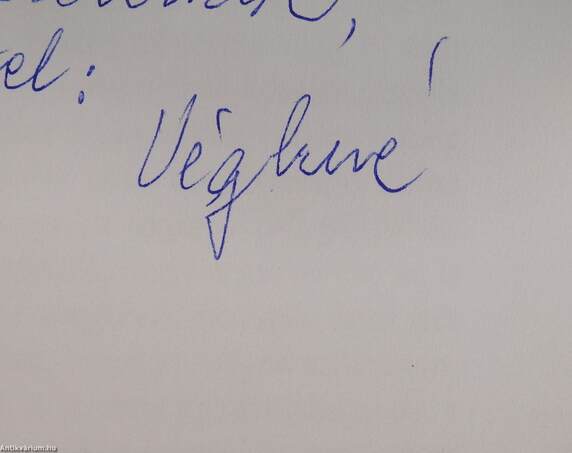 el:
Véghné
Antikvárium.hu